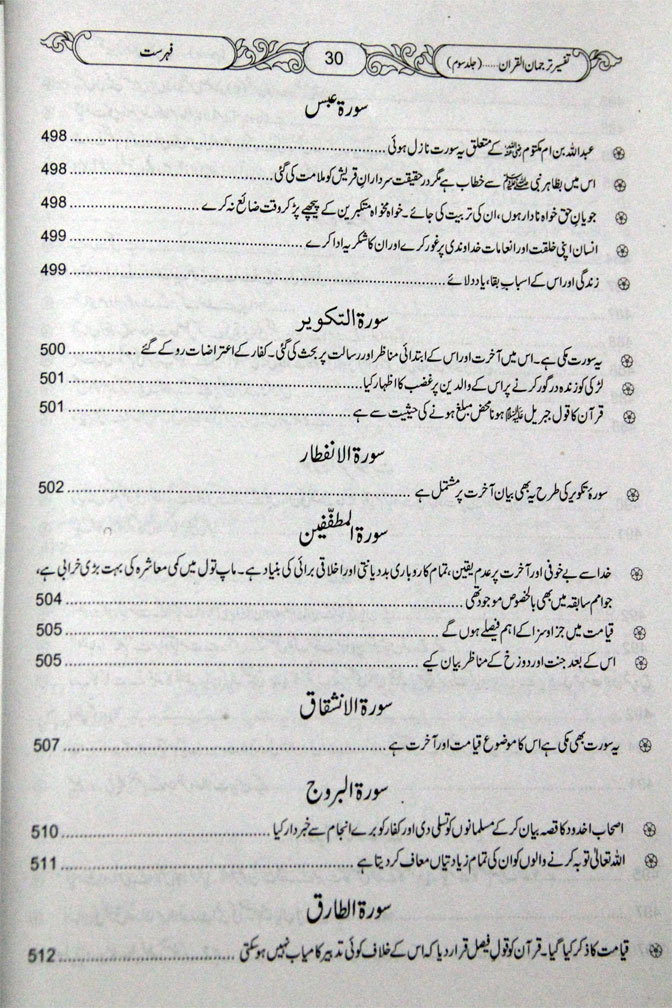 تفسیر ترجمان القران.....(جلد سوم) 30 فہرست
سورۃ عبس
عبداللہ بن ام مکتوم رضی اللہ عنہ کے متعلق یہ سورت نازل ہوئی 498
اس میں بظاہر نبی صلی اللہ علیہ وسلم سے خطاب ہے مگر در حقیقت سردارانِ قریش کو ملامت کی گئی 498
جویانِ حق خواہ نادار ہوں، ان کی تربیت کی جائے۔ خواہ مخواہ متکبرین کے پیچھے پڑ کر وقت ضائع نہ کرے 498
انسان اپنی خلقت اور انعامات خداوندی پر غور کرے اور ان کا شکریہ ادا کرے 499
زندگی اور اس کے اسباب بقاء یاد دلائے 499
سورۃ التکویر
یہ سورت مکی ہے۔ اس میں آخرت اور اس کے ابتدائی مناظر اور رسالت پر بحث کی گئی۔ کفار کے اعتراضات رد کے گئے 500
لڑکی کو زندہ درگور کرنے پر اس کے والدین پر غضب کا اظہار کیا 501
قرآن کا قول جبریل علیہ السلام ہونا محض مبلغ ہونے کی حیثیت سے ہے 501
سورۃ الانفطار
سورۂ تکویر کی طرح یہ بھی بیان آخرت پر مشتمل ہے 502
سورۃ المطفّفین
خدا سے بے خوفی اور آخرت پر عدم یقین، تمام کاروباری بددیانتی اور اخلاقی برائی کی بنیاد ہے۔ ماپ تول میں کمی معاشرہ کی بہت بڑی خرابی ہے،
جو امم سابقہ میں بھی بالخصوص موجود تھی 504
قیامت میں جزا و سزا کے اہم فیصلے ہوں گے 505
اس کے بعد جنت اور دوزخ کے مناظر بیان کیے 505
سورۃ الانشقاق
یہ سورت بھی مکی ہے اس کا موضوع قیامت اور آخرت ہے 507
سورۃ البروج
اصحاب اخدود کا قصہ بیان کر کے مسلمانوں کو تسلی دی اور کفار کو برے انجام سے خبردار کیا 510
اللہ تعالیٰ توبہ کرنے والوں کو ان کی تمام زیادتیاں معاف کر دیتا ہے 511
سورۃ الطارق
قیامت کا ذکر کیا گیا۔ قرآن کو قول فیصل قرار دیا کہ اس کے خلاف کوئی تدبیر کامیاب نہیں ہو سکتی 512